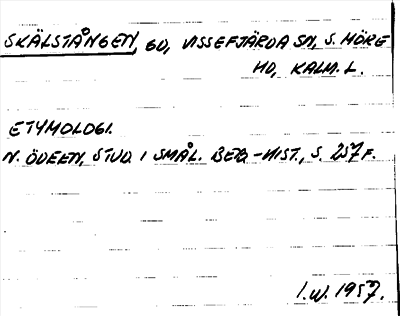 SKÄLSTÅNGEN, GD, VISSEFJÄRDA SN, S. MÖRE
HD, KALM. L.
ETYMOLOGI.
N. ÖDEEN, STUD. I SMÅL. BEB.-HIST., S. 257 F.
I.W. 1957.